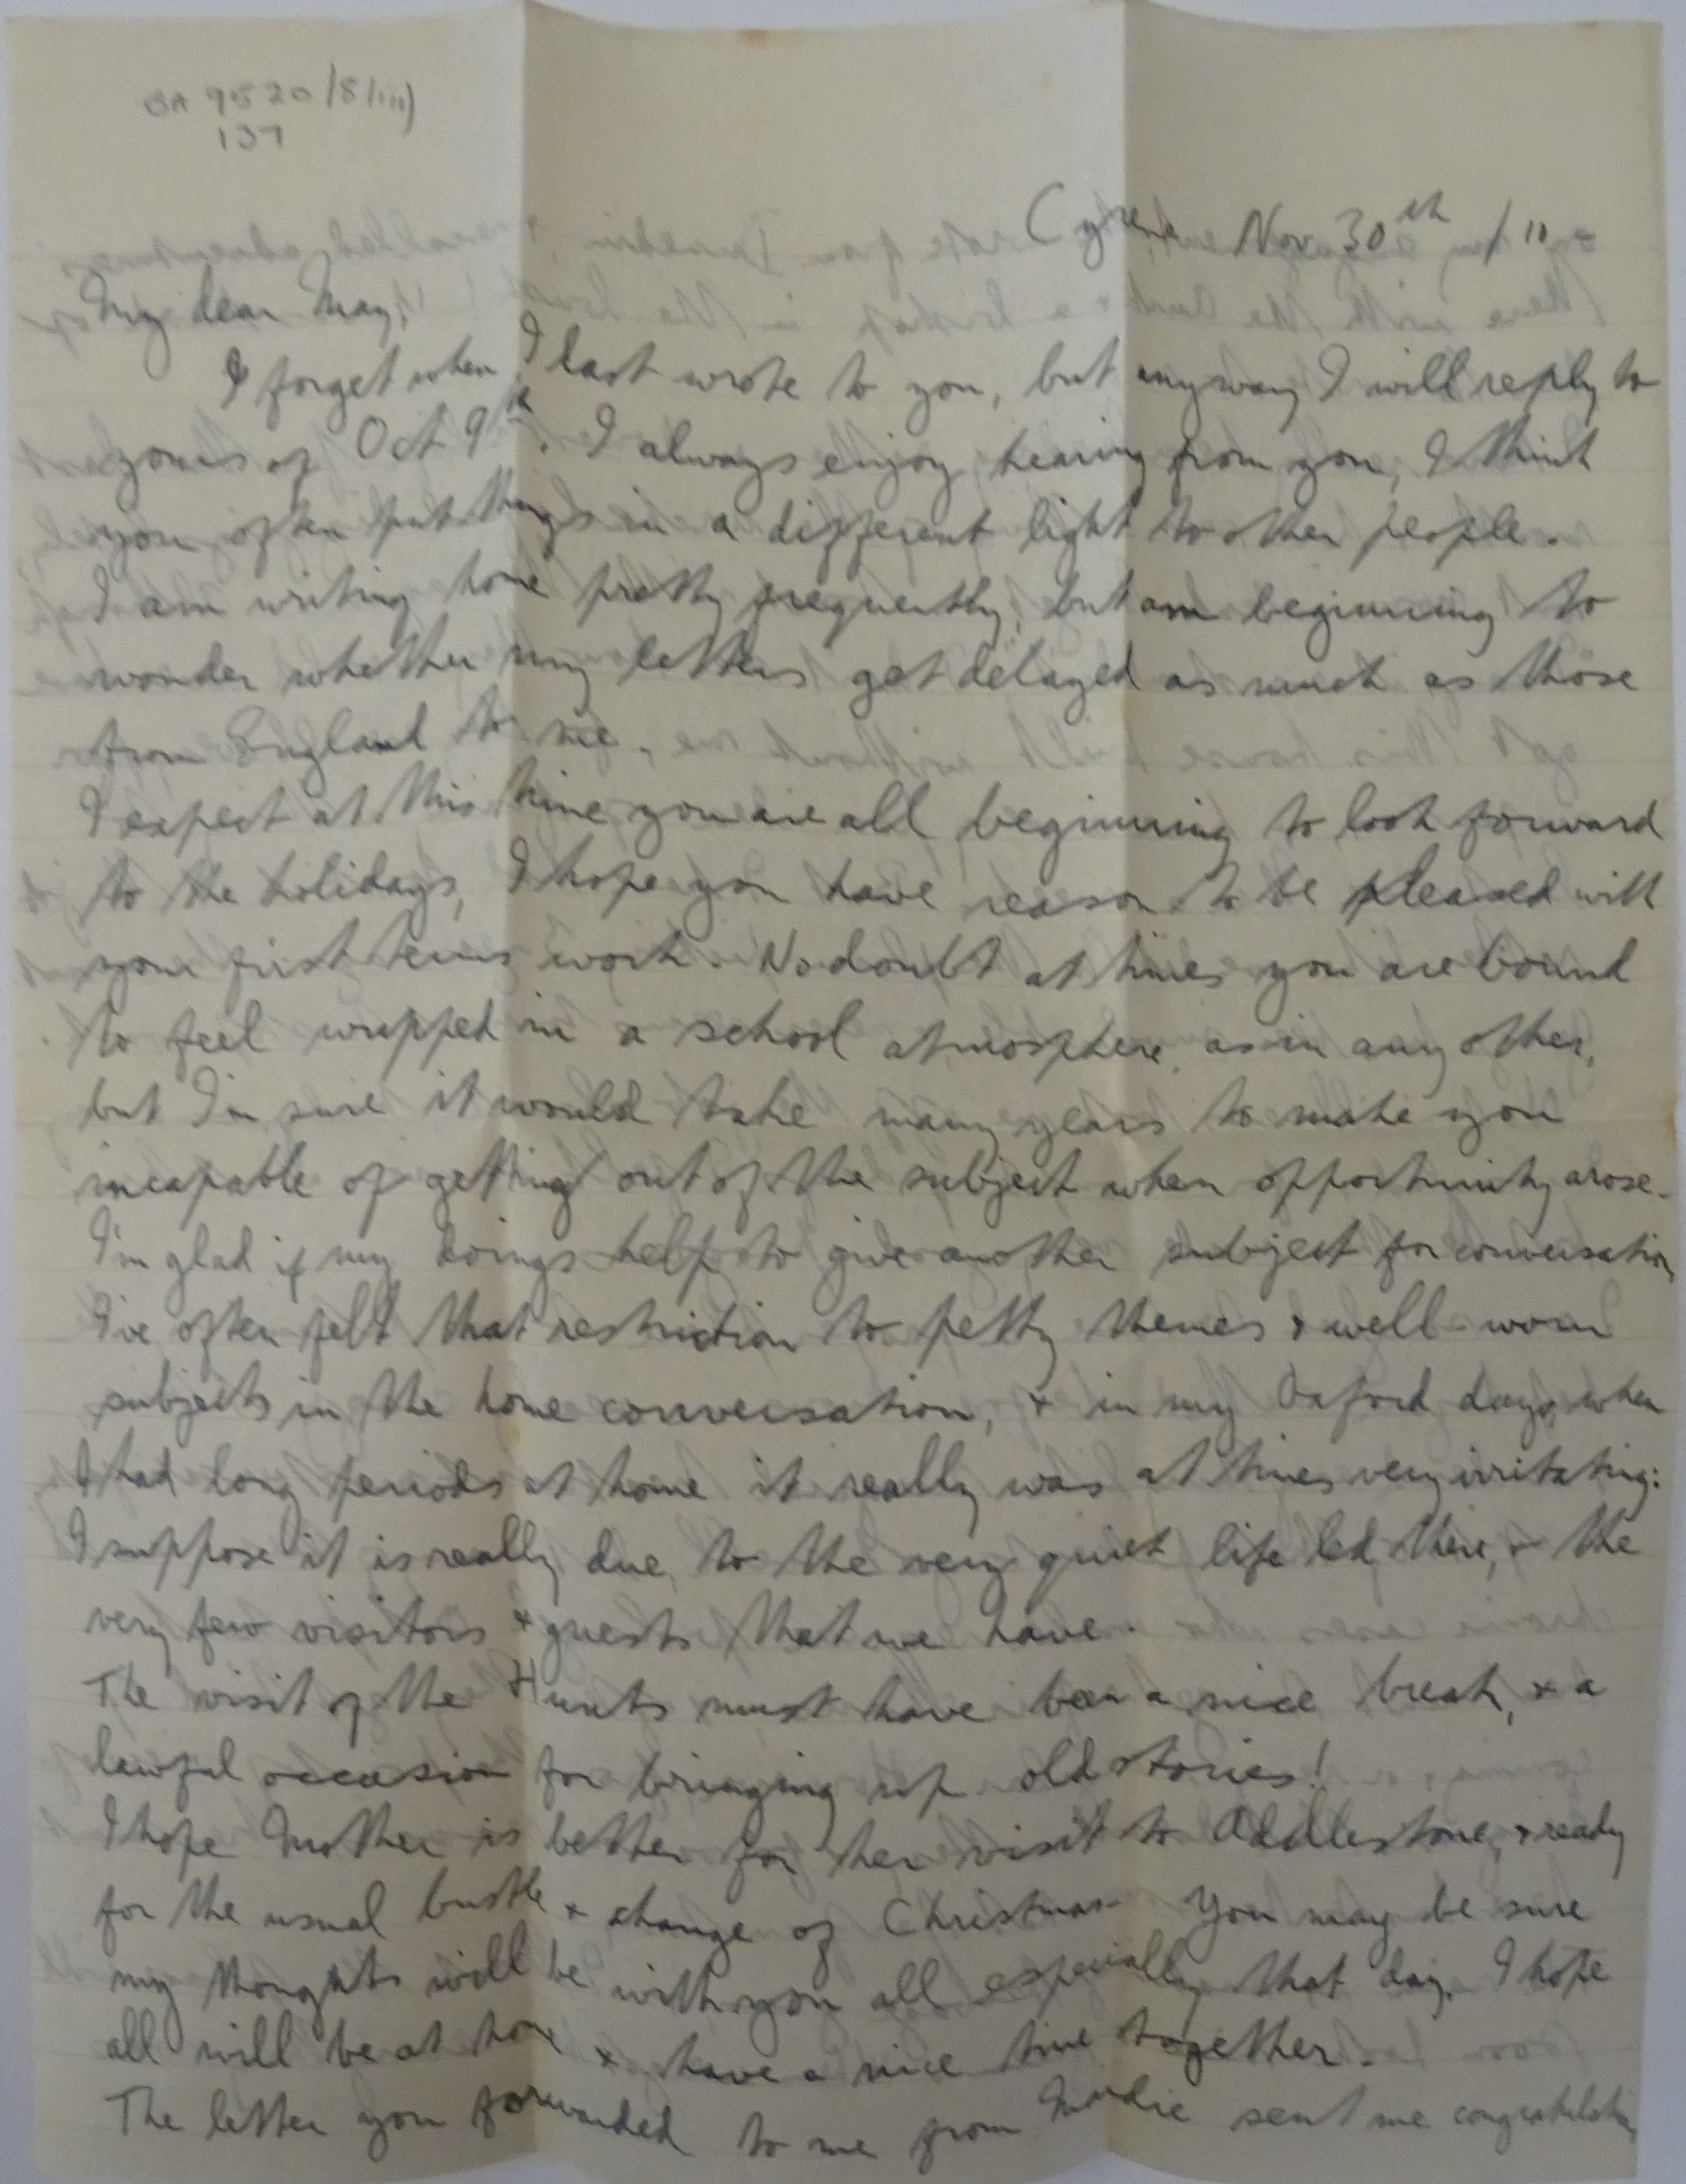 BA 9520/8(iii)
137
Cyrene Nov. 30th /10
My dear May,
I forget when I last wrote to you, but anyway I will reply to
yours of Oct 9th. I always enjoy hearing from you, I think
you often put things in a different light to other people.
I am writing home pretty frequently, but am beginning to
wonder whether my letters get delayed as much as those
from England to me.
I expect at this time you are all beginning to look forward
to the holidays, I hope you have reason to be pleased with
your first terms work. No doubt at times you are bound
to feel wrapped in a school atmosphere, as in any other,
but I'm sure it would take many years to make you
incapable of getting out of the subject when opportunity arose.
I'm glad if my doings help to give another subject for conversation,
I've often felt that restriction to petty themes & well-worn
subjects in the home conversation, & in my Oxford days, when
I had long periods at home it really was at times very irritating:
I suppose it is really due to the very quiet life led there, & the
very few visitors & guests that we have.
The visit of the Hunts must have been a nice break, & a
lawful occasion for bringing up old stories!
I hope Mother is better for her visit to Addlestone, & ready
for the usual bustle & change of Christmas. You may be sure
my thoughts will be with you all especially that day. I hope
all will be at home & have a nice time together.
The letter you forwarded to me from sent me congratulations